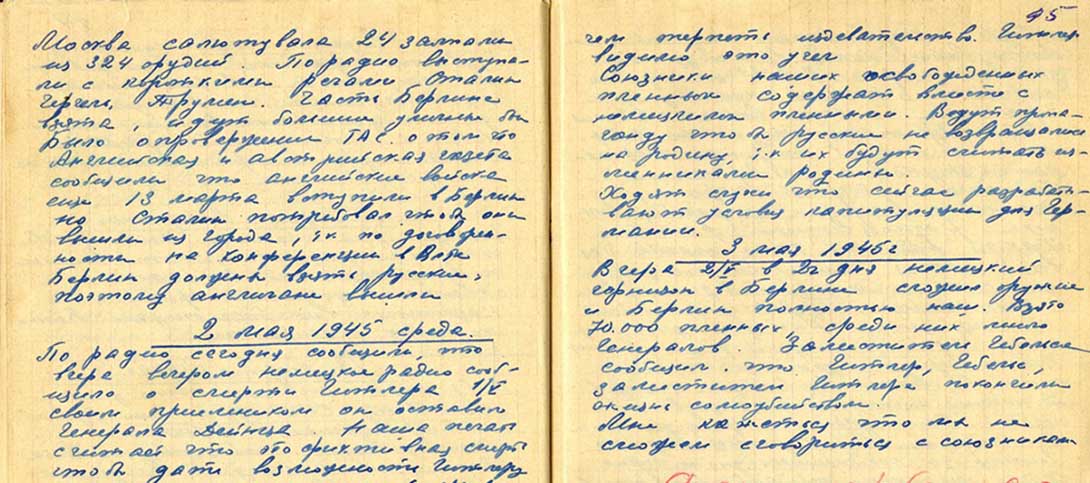 Москва салютувала 24 залпами
из 324 орудий. По радио выступа-
ли с короткими речами Сталин
Черчель, Трумен. Часть Берлина
взята, идут большие уличные бои
Было опровержение ТАС. о том что
Английская и австрийская газета
сообщили что английские войска
еще 13 марта вступили в Берлин
но Сталин потребовал чтобы они
вышли из города, т.к по договорен-
ности на конференции в Ялте
Берлин должны взять русские,
поэтому англичане вышли
2 мая 1945 среда.
По радио сегодня сообщили, что
вчера вечером немецкое радио сооб-
щило о смерти Гитлера 1/V
своим приемником он оставил
Генерала Дейница. Наша печать
считает что это фиктивная смерть
чтобы дать возможность Гитлеру
95
чем терпеть издевательство. Гитлер
видимо это учел
Союзники наших освобожденных
пленных содержат вместе с
немецкими пленными. Ведут пропа-
ганду чтобы русские не возвращались
на родину, т.к их будут считать из-
менниками родины.
Ходят слухи что сейчас разрабаты-
вают условия капитуляции для Гер-
мании.
3 мая 1945г
Вчера 2/V в 2ч дня немецкий
гарнизон в Берлине сложил оружие
и Берлин полностью наш. Взято
70.000 пленных, среди них много
Генералов. Заместитель Гебельса
сообщил что Гитлер, Гебельс,
заместитель Гитлера покончили
жизнь самоубийством.
Мне кажеться что мы не
сможем сговориться с союзниками